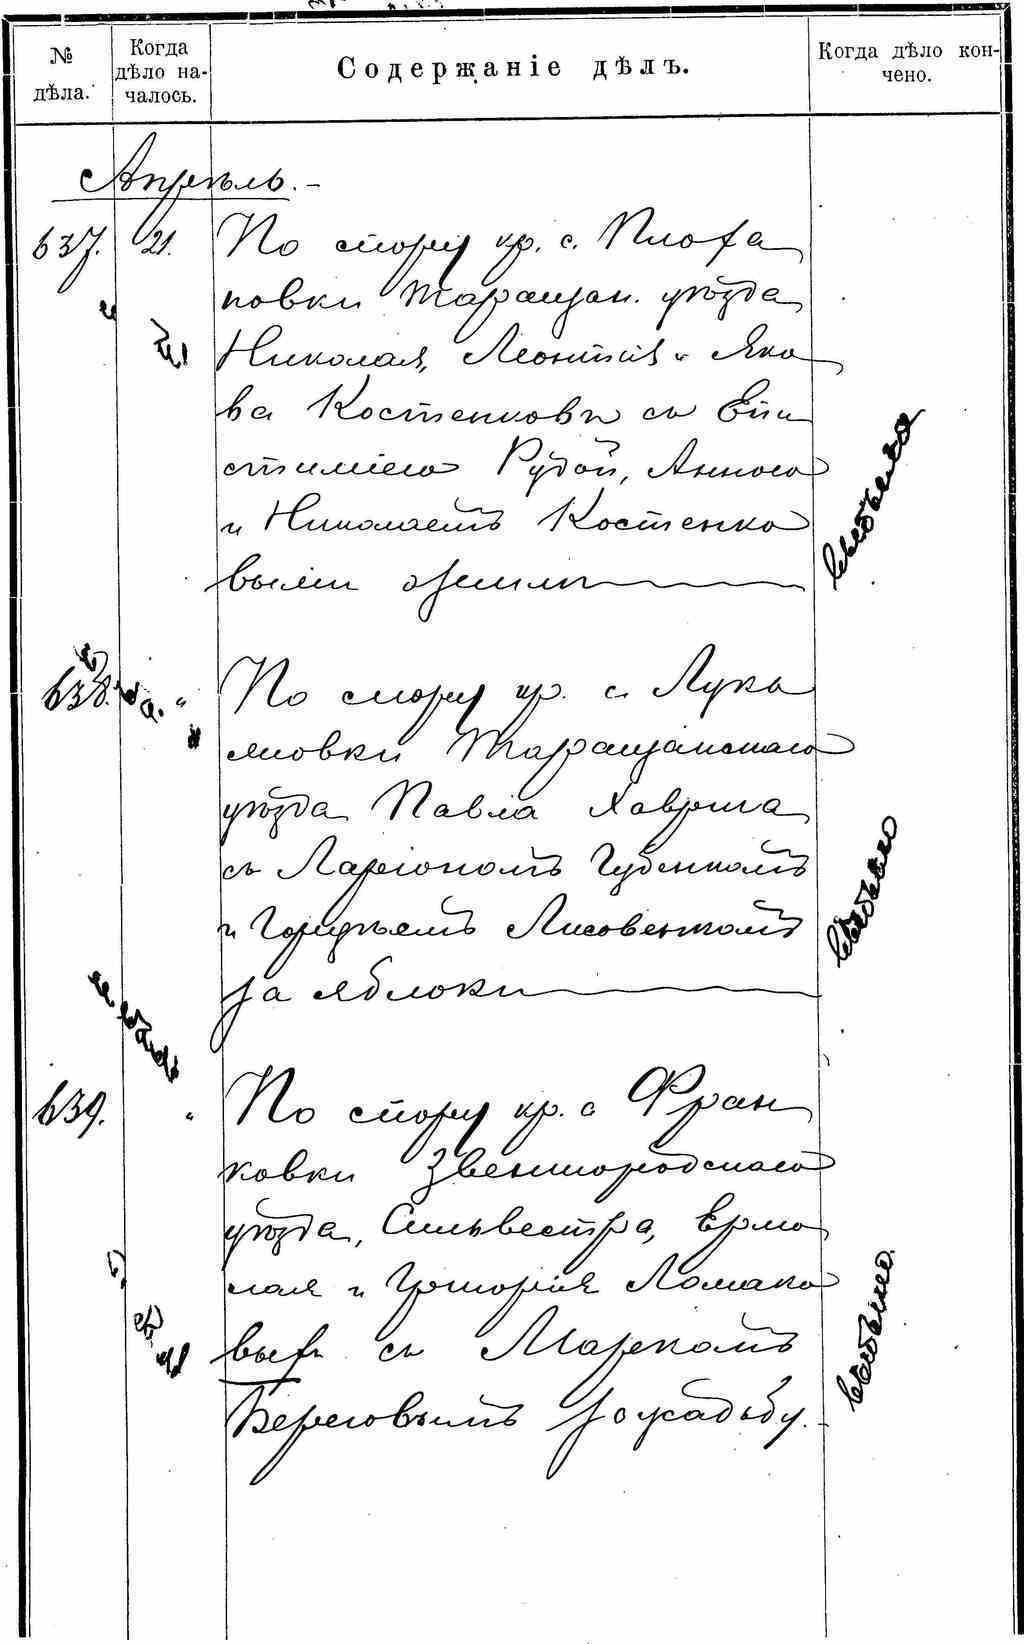 №
дѣла.
Когда
дѣло на-
чалось.
Содержаніе дѣлъ.
Когда дѣло кон-
чено.
Апрѣль. -
637. 21. По спору кр. с. Плоха
новки Таращан. уѣзда
Николая, Леонтія и Яко
ва Костенковъ съ Епи
стиміею Рудой, Анною
и Николаемъ Костенко
выми о землѣ
638. " По спору кр. с. Лукь
яновки Таращанскаго
уѣзда Павла Хавриша
съ Ларіономъ Гуденкомъ
и Гордѣемъ Лисовенкомъ
за яблоки
639. " По спору кр. с Фран
ковки Звенигородскаго
уѣзда, Сильвестра, Ермо
лая и Григорія Ломако
выхъ съ Маркомъ
Береговымъ за усадьбу. -